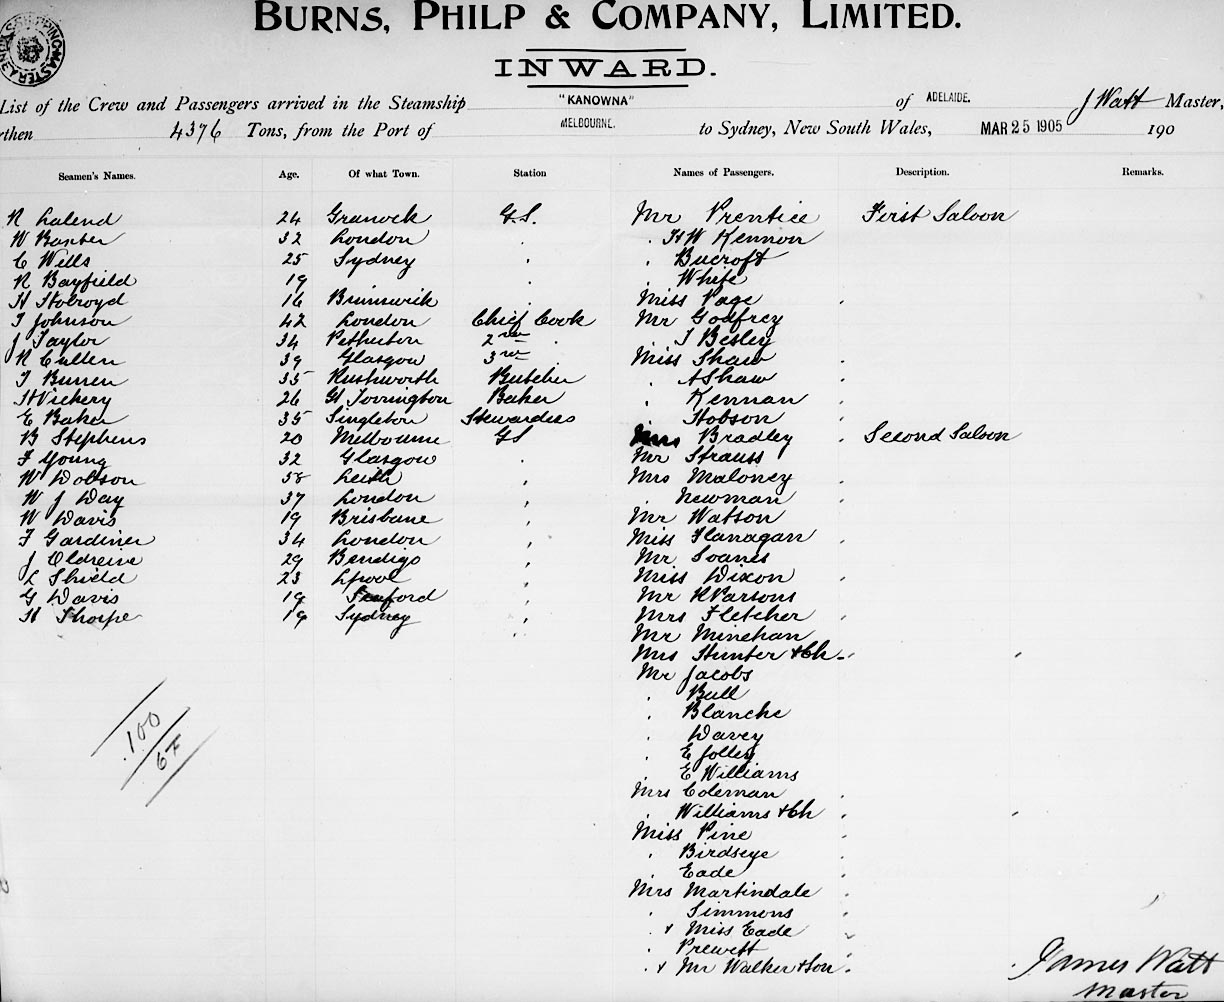 BURNS, PHILP & COMPANY, LIMITED.
INWARD.
List of the Crew and Passengers arrived in the Steamship "KANOWNA" of ADELAIDE. J Watt Master,
rthen 4376 Tons, from the Port of MELBOURNE. to Sydney, New South Wales, MAR 25 1905 190
Seamen's Names. Age. Of what Town. Station Names of Passengers. Description. Remarks.
R Lalend 24 Granock G.S. Mr Prentice First Saloon
W Baxter 32 London . . H W Kennon
C Wills 25 Sydney . . Bucroft
R Bayfield 19 . . White
H Holroyd 16 Brunswick . Miss Page .
T Johnson 42 London Chief Cook Mr Godfrey
J Taylor 34 Petherton 2nd . . T Besley
R Cullen 39 Glasgow 3rd Miss Shaw .
T Burren 35 Rushworth Butcher . A Shaw .
H Vickery 26 Gt Torrington Baker . Kennan .
E Baker 35 Singleton Stewardess . Hobson .
B Stephens 20 Melbourne GS Mrs Bradley . Second Saloon
F Young 32 Glasgow . Mr Strauss
W Dobson 58 Leith . Mrs Maloney .
W J Day 37 London . . Newman .
W Davis 19 Brisbane . Mr Watson
F Gardiner 34 London . Miss Flanagan .
J Oldreive 29 Bendigo . Mr Soanes
L Shield 23 Lpool . Miss Dixon .
G Davis 19 Seaford . Mr R Parsons
H Thorpe 19 Sydney . Mrs Fletcher .
Mr Minehan
Mrs Hunter + Ch .
Mr Jacobs
. Bull
. Blanche
. Davey
. E Jolley
. E Williams
Mrs Coleman .
. Williams + Ch .
Miss Pine .
. Birdseye .
. Eade .
Mrs Martindale .
. Simmons .
. + Miss Eade
. Prewett .
. + Mr Walker + Son .
100
67
James Watt
Master